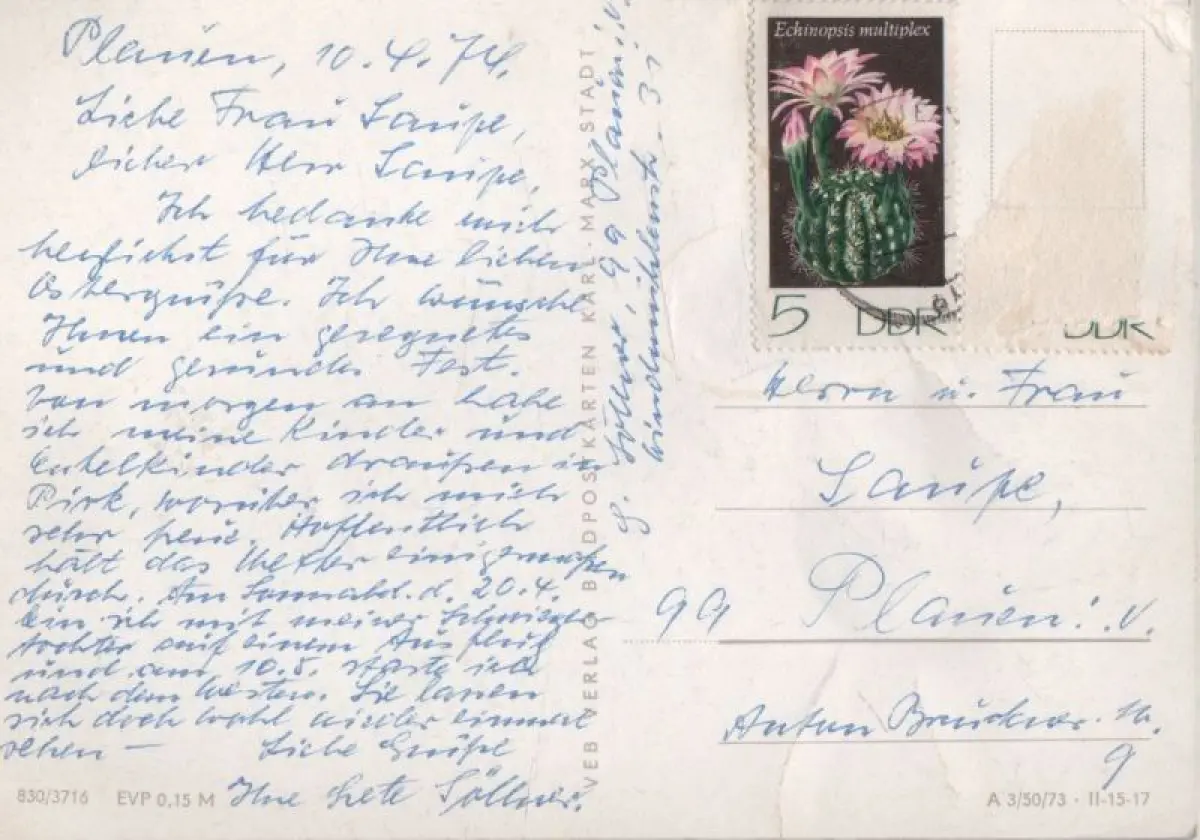 Plauen, 10.4.74.
Liebe Frau Saupe,
lieber Herr Saupe,
Ich bedanke mich
herzlichst für Ihre lieben
Ostergrüße. Ich wünsche
Ihnen ein geregnetes
und gesundes Fest.
Von morgen an habe
ich meine Kinder und
Enkelkinder draußen in
Pirk, worüber ich mich
sehr freue. Hoffentlich
hält das Wetter einigermaßen
durch. Am Sonnabd. d. 20.4.
bin ich mit meiner Schwieger-
tochter auf einem Ausflug
und am 10.5. starte ich
nach dem Westen. Sie lassen
sich doch wohl wieder einmal
sehen —
Liebe Grüße
Ihre Grete Söllner.
830/3716 EVP 0,15 M
VEB VERLAG BILDPOSTKARTEN KARL-MARX-STADT
G. Söllner, 99 Plauen i.V.
Windmühlenstr. 31
Echinopsis multiplex
5 DDR
DDR
Herrn u. Frau
Saupe,
99 Plauen i.V.
Anton Bruckner-
9
A 3/50/73 · II-15-17